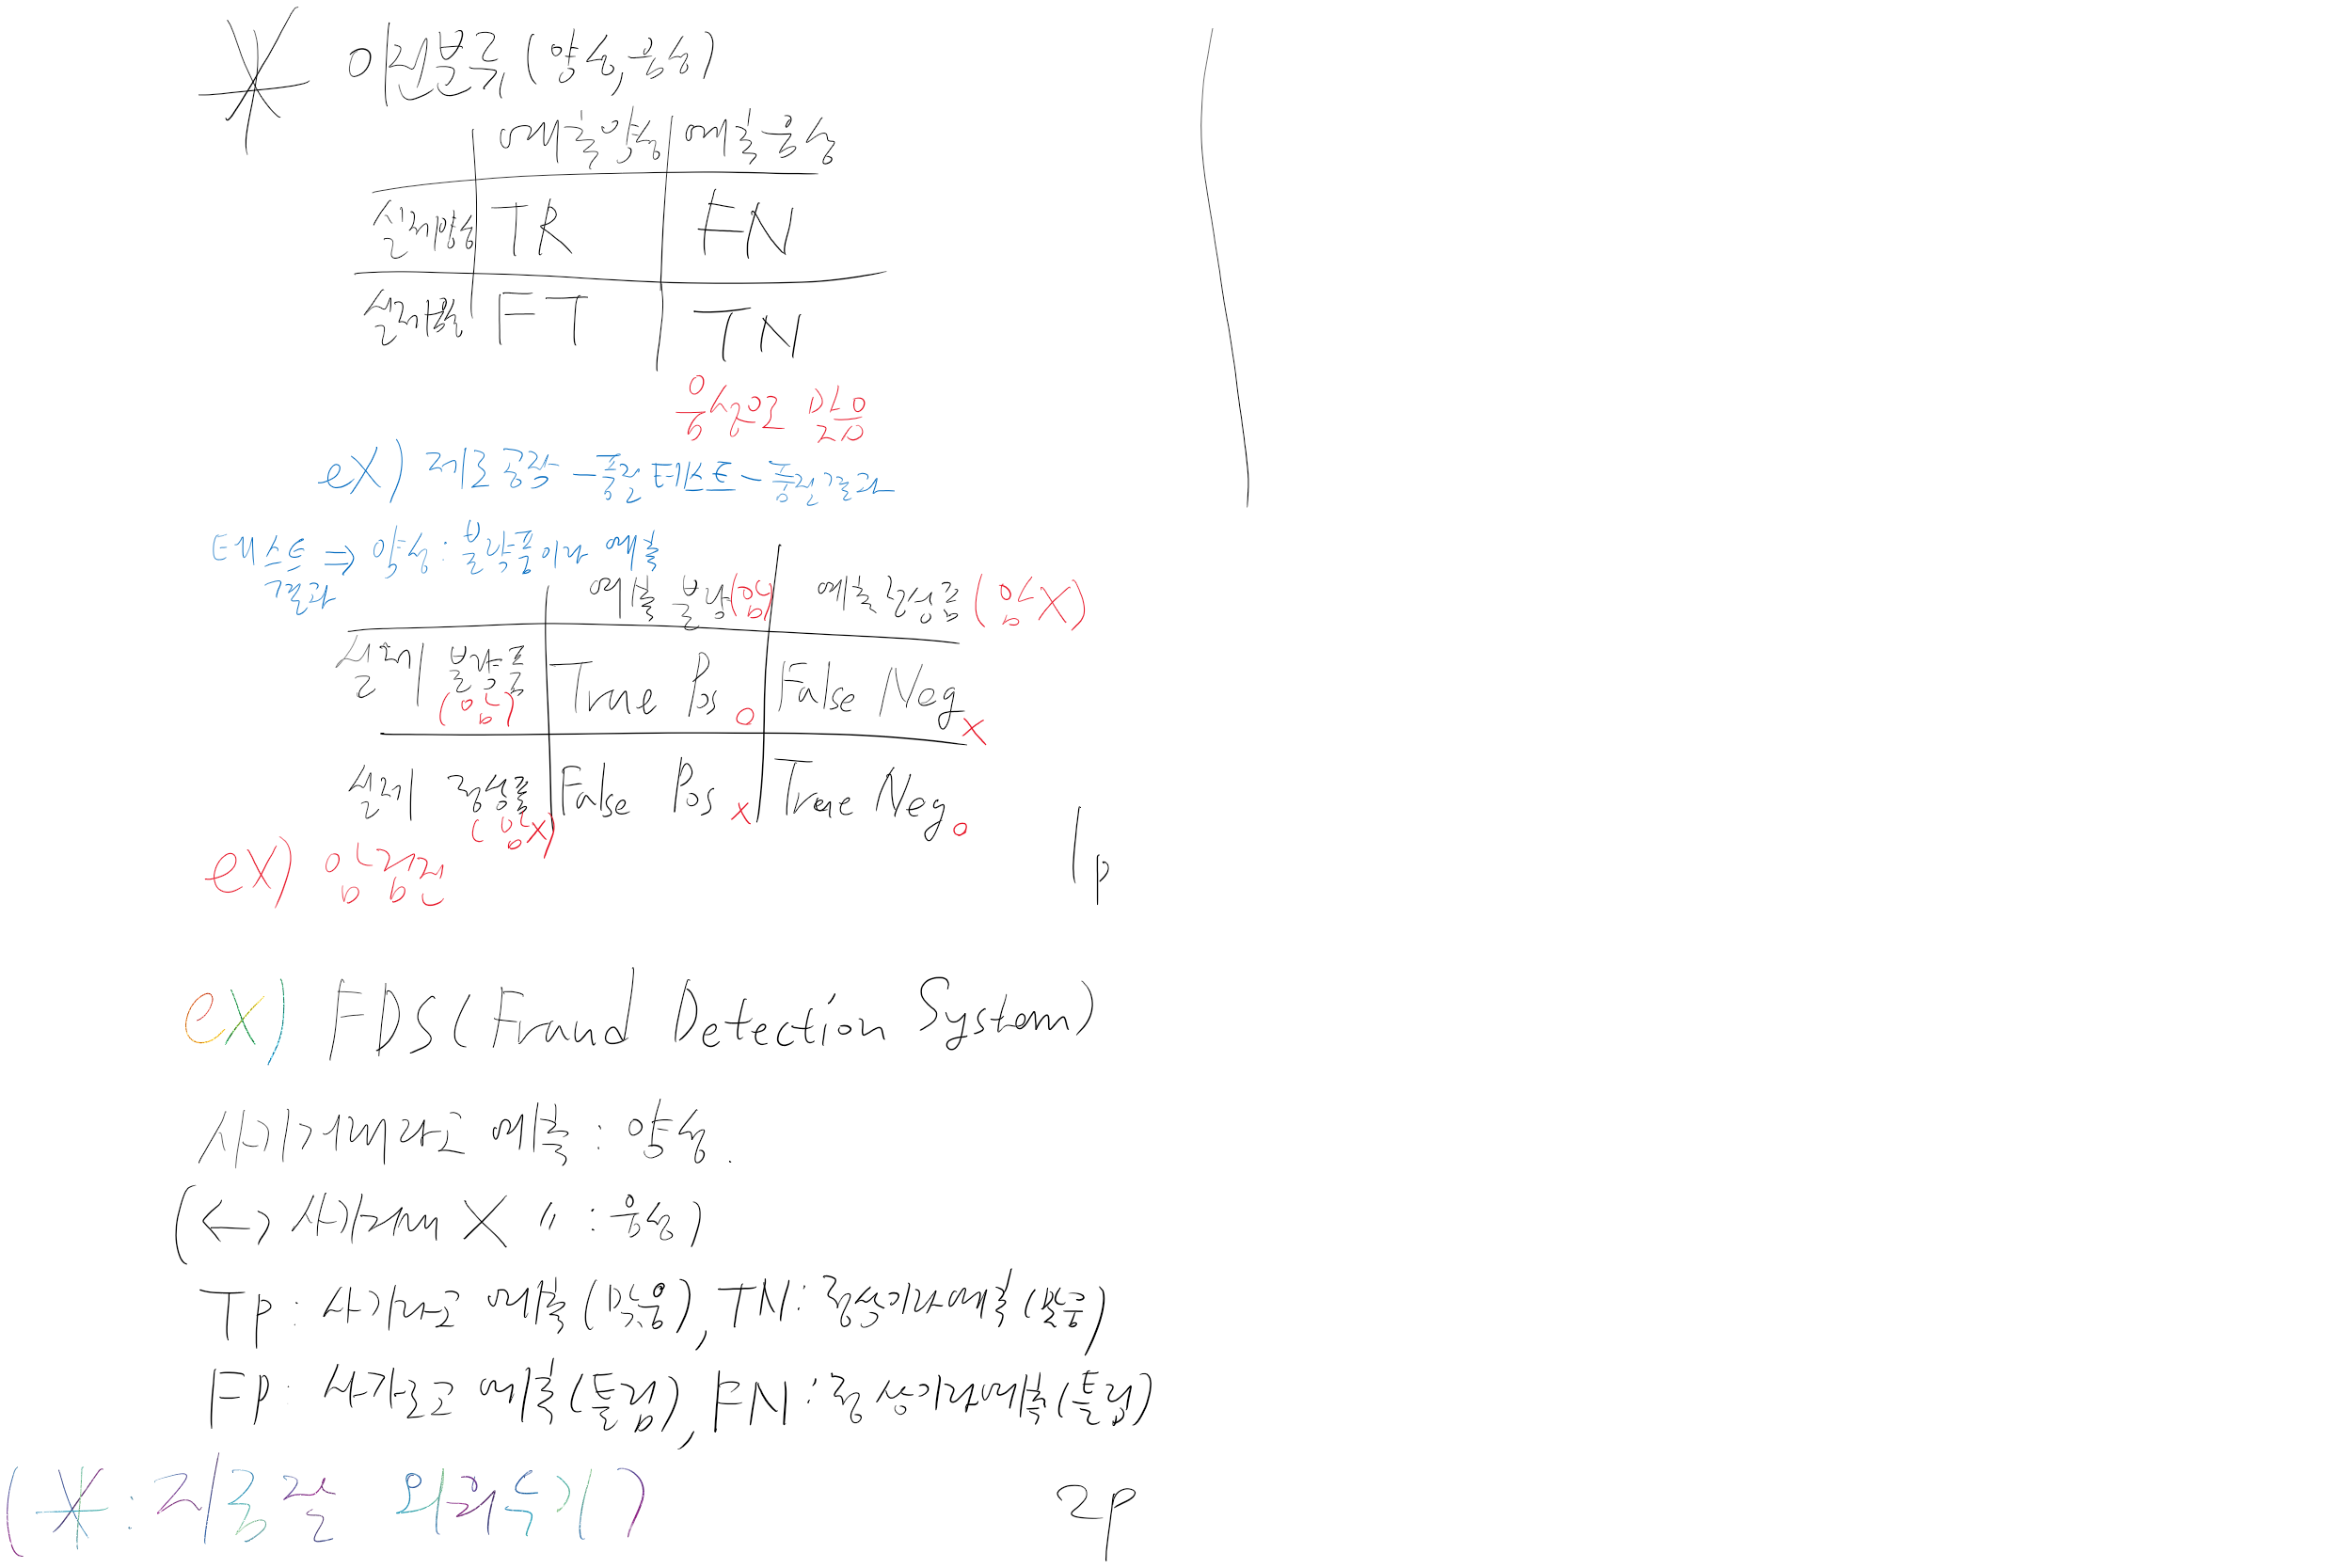 * 이진분류 (양성,음성)
예측양성 예측음성
실제양성 TR FN
실제음성 FT TN
음성으로 맞음
ex) 제조공장 - 품질테스트 - 품질결과
테스트 ⇒ 양성 : 불량품이라 예측
결과
예측 불량(암) 예측 정상품 (암X)
실제 불량품 True Pos o False Neg x
(암)
실제 정상품 False Pos x True Neg o
(암x)
ex) 암검진
1p
ex) FDS (Fraud Detection System)
사기거래라고 예측 : 양성.
(↔ 사기거래 X 〃 : 음성)
TP : 사기라고 예측 (맞음), TN : 정상이라예측 (맞음)
FP : 사기라고 예측 (틀림), FN : 정상이라예측 (틀림)
(* : 지금 잘 외워두기)
2p